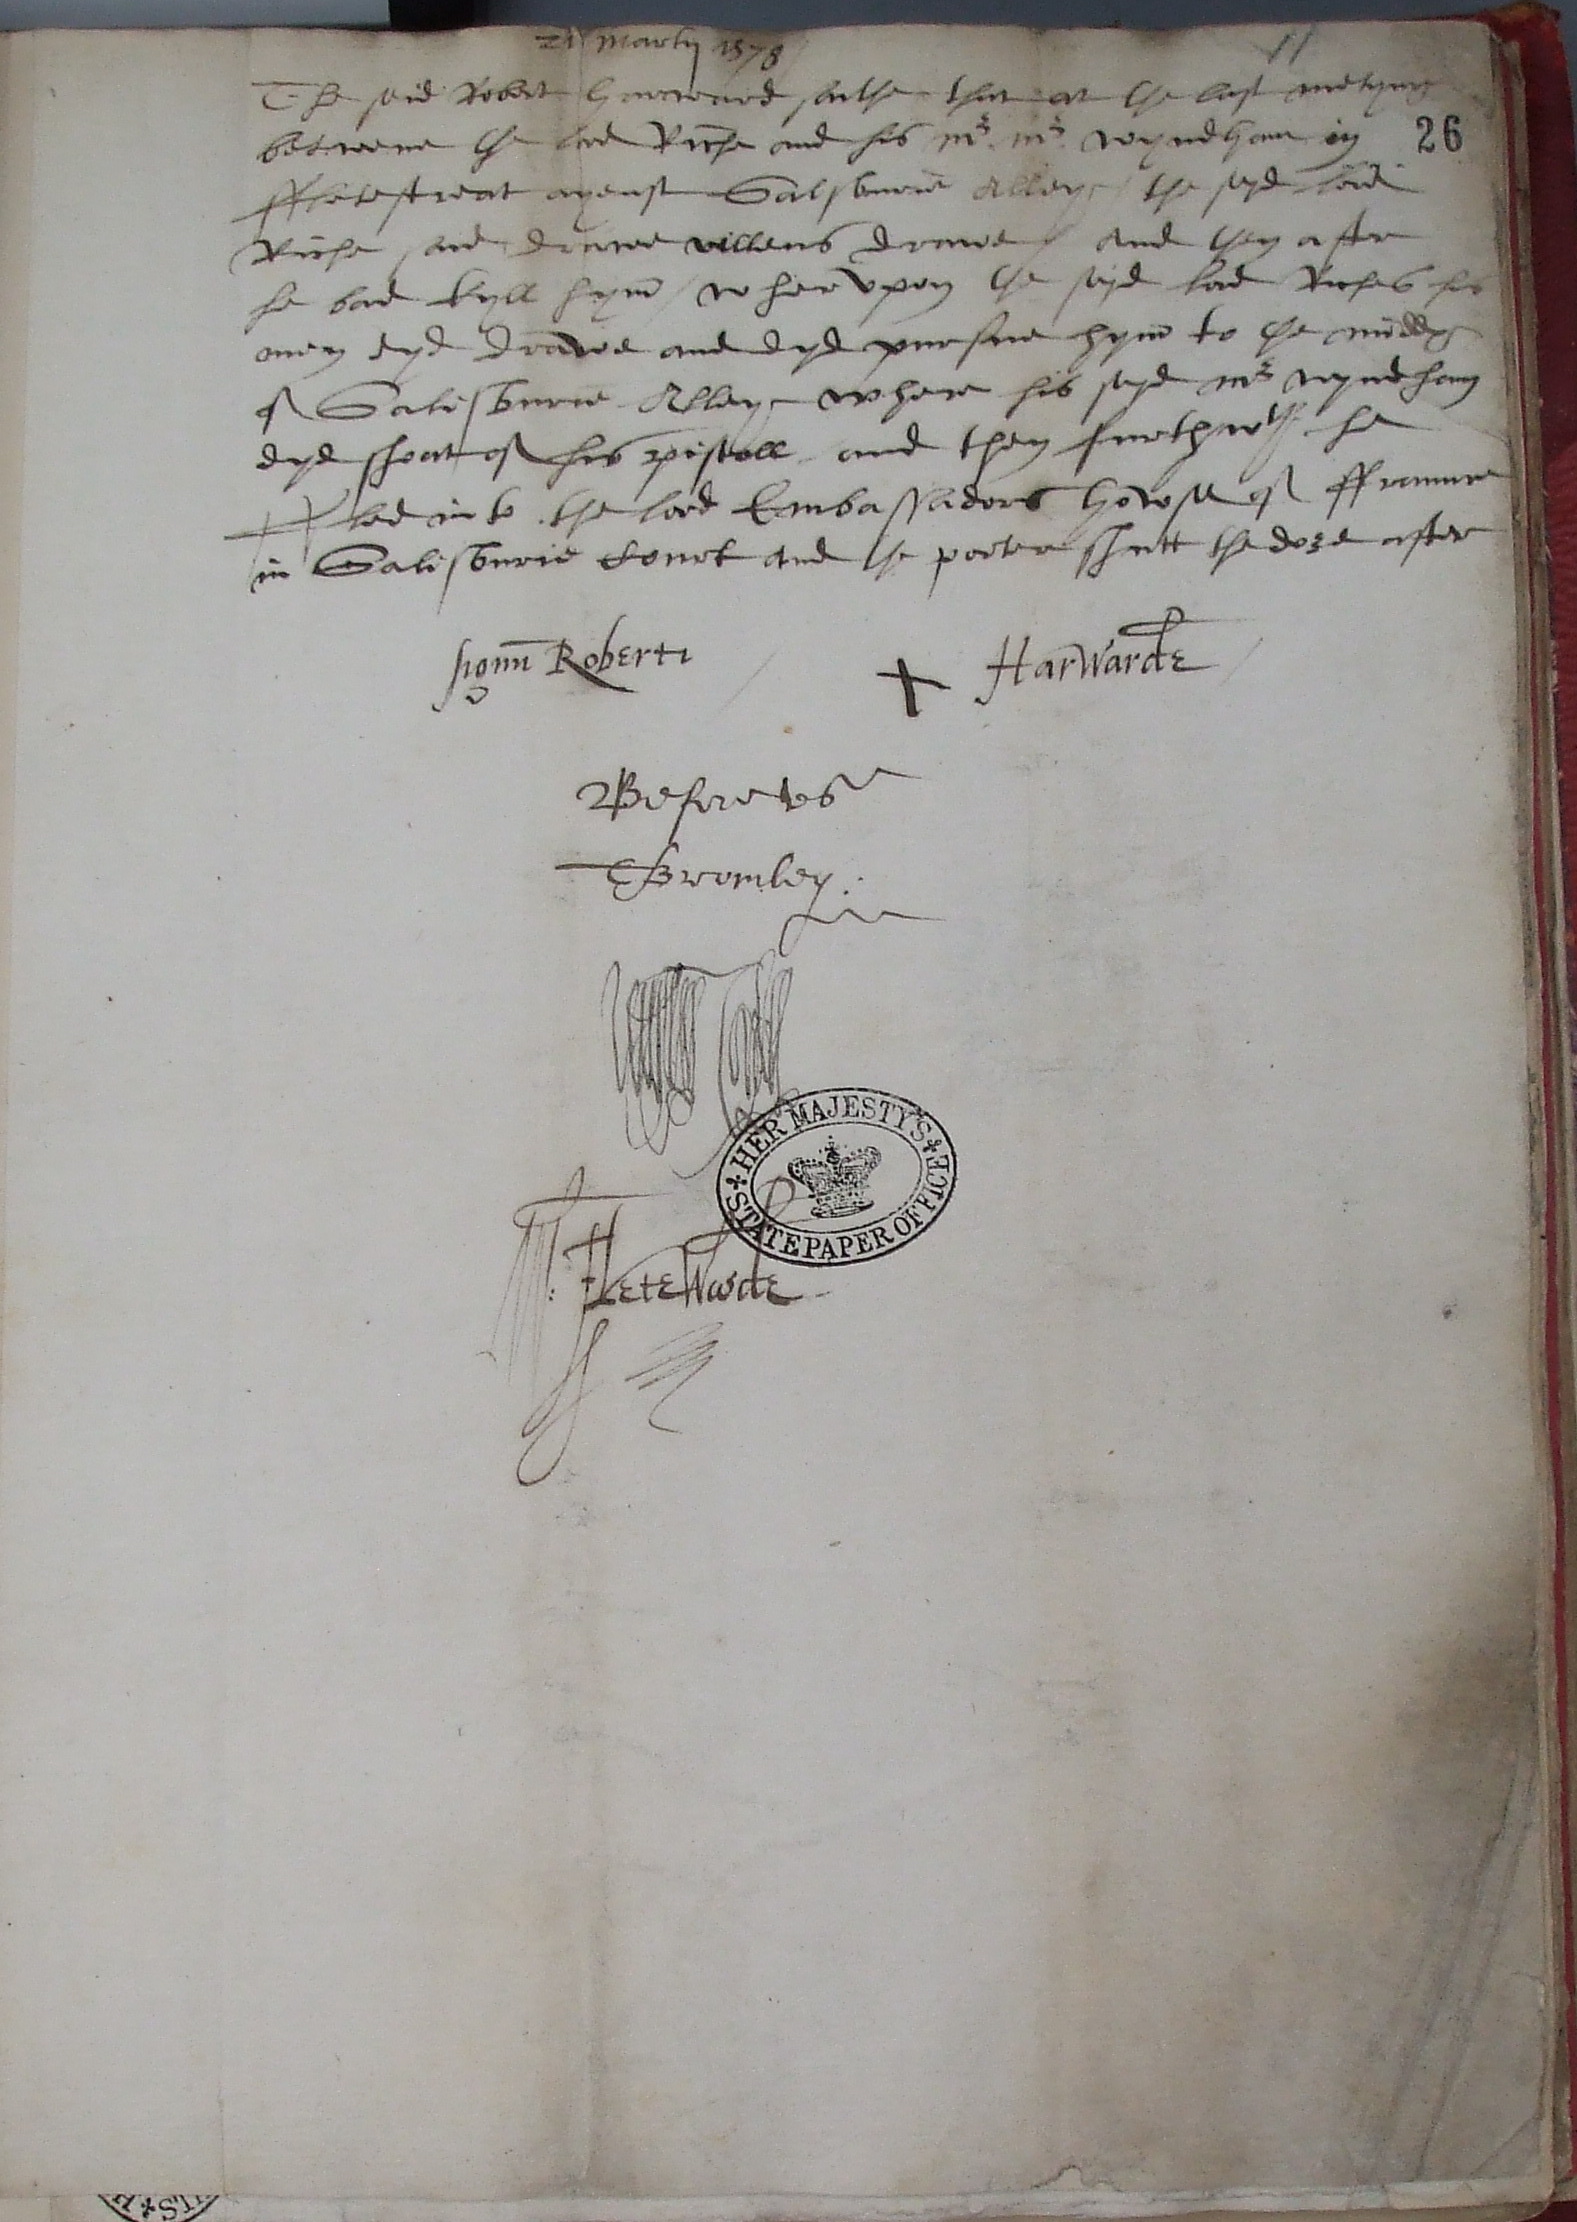 21 Martij 1578
The said Robert Harward saithe that at the last metyng
betwene the lord Riche and his mr. mr. wyndham in
ffletestreat agenst Salisburie Alley / the seyd lord
Riche said drawe villens drawe / and then after
he bad kyll hym / wherupon the seyd lord Riches his
men dyd drawe and dyd pursue hym to the middes
of Salisburie Alley where his seyd mr wyndham
dyd shoat of his pistoll and then furthwth he
ffled into the lord Embassadors howse of ffraunce
in Salisburie Court and the porter shutt the dore after
26
signu Roberti + HarWarde
Before us
T Bromley.
HER MAJESTY'S STATE PAPER OFFICE
W: FleteWode